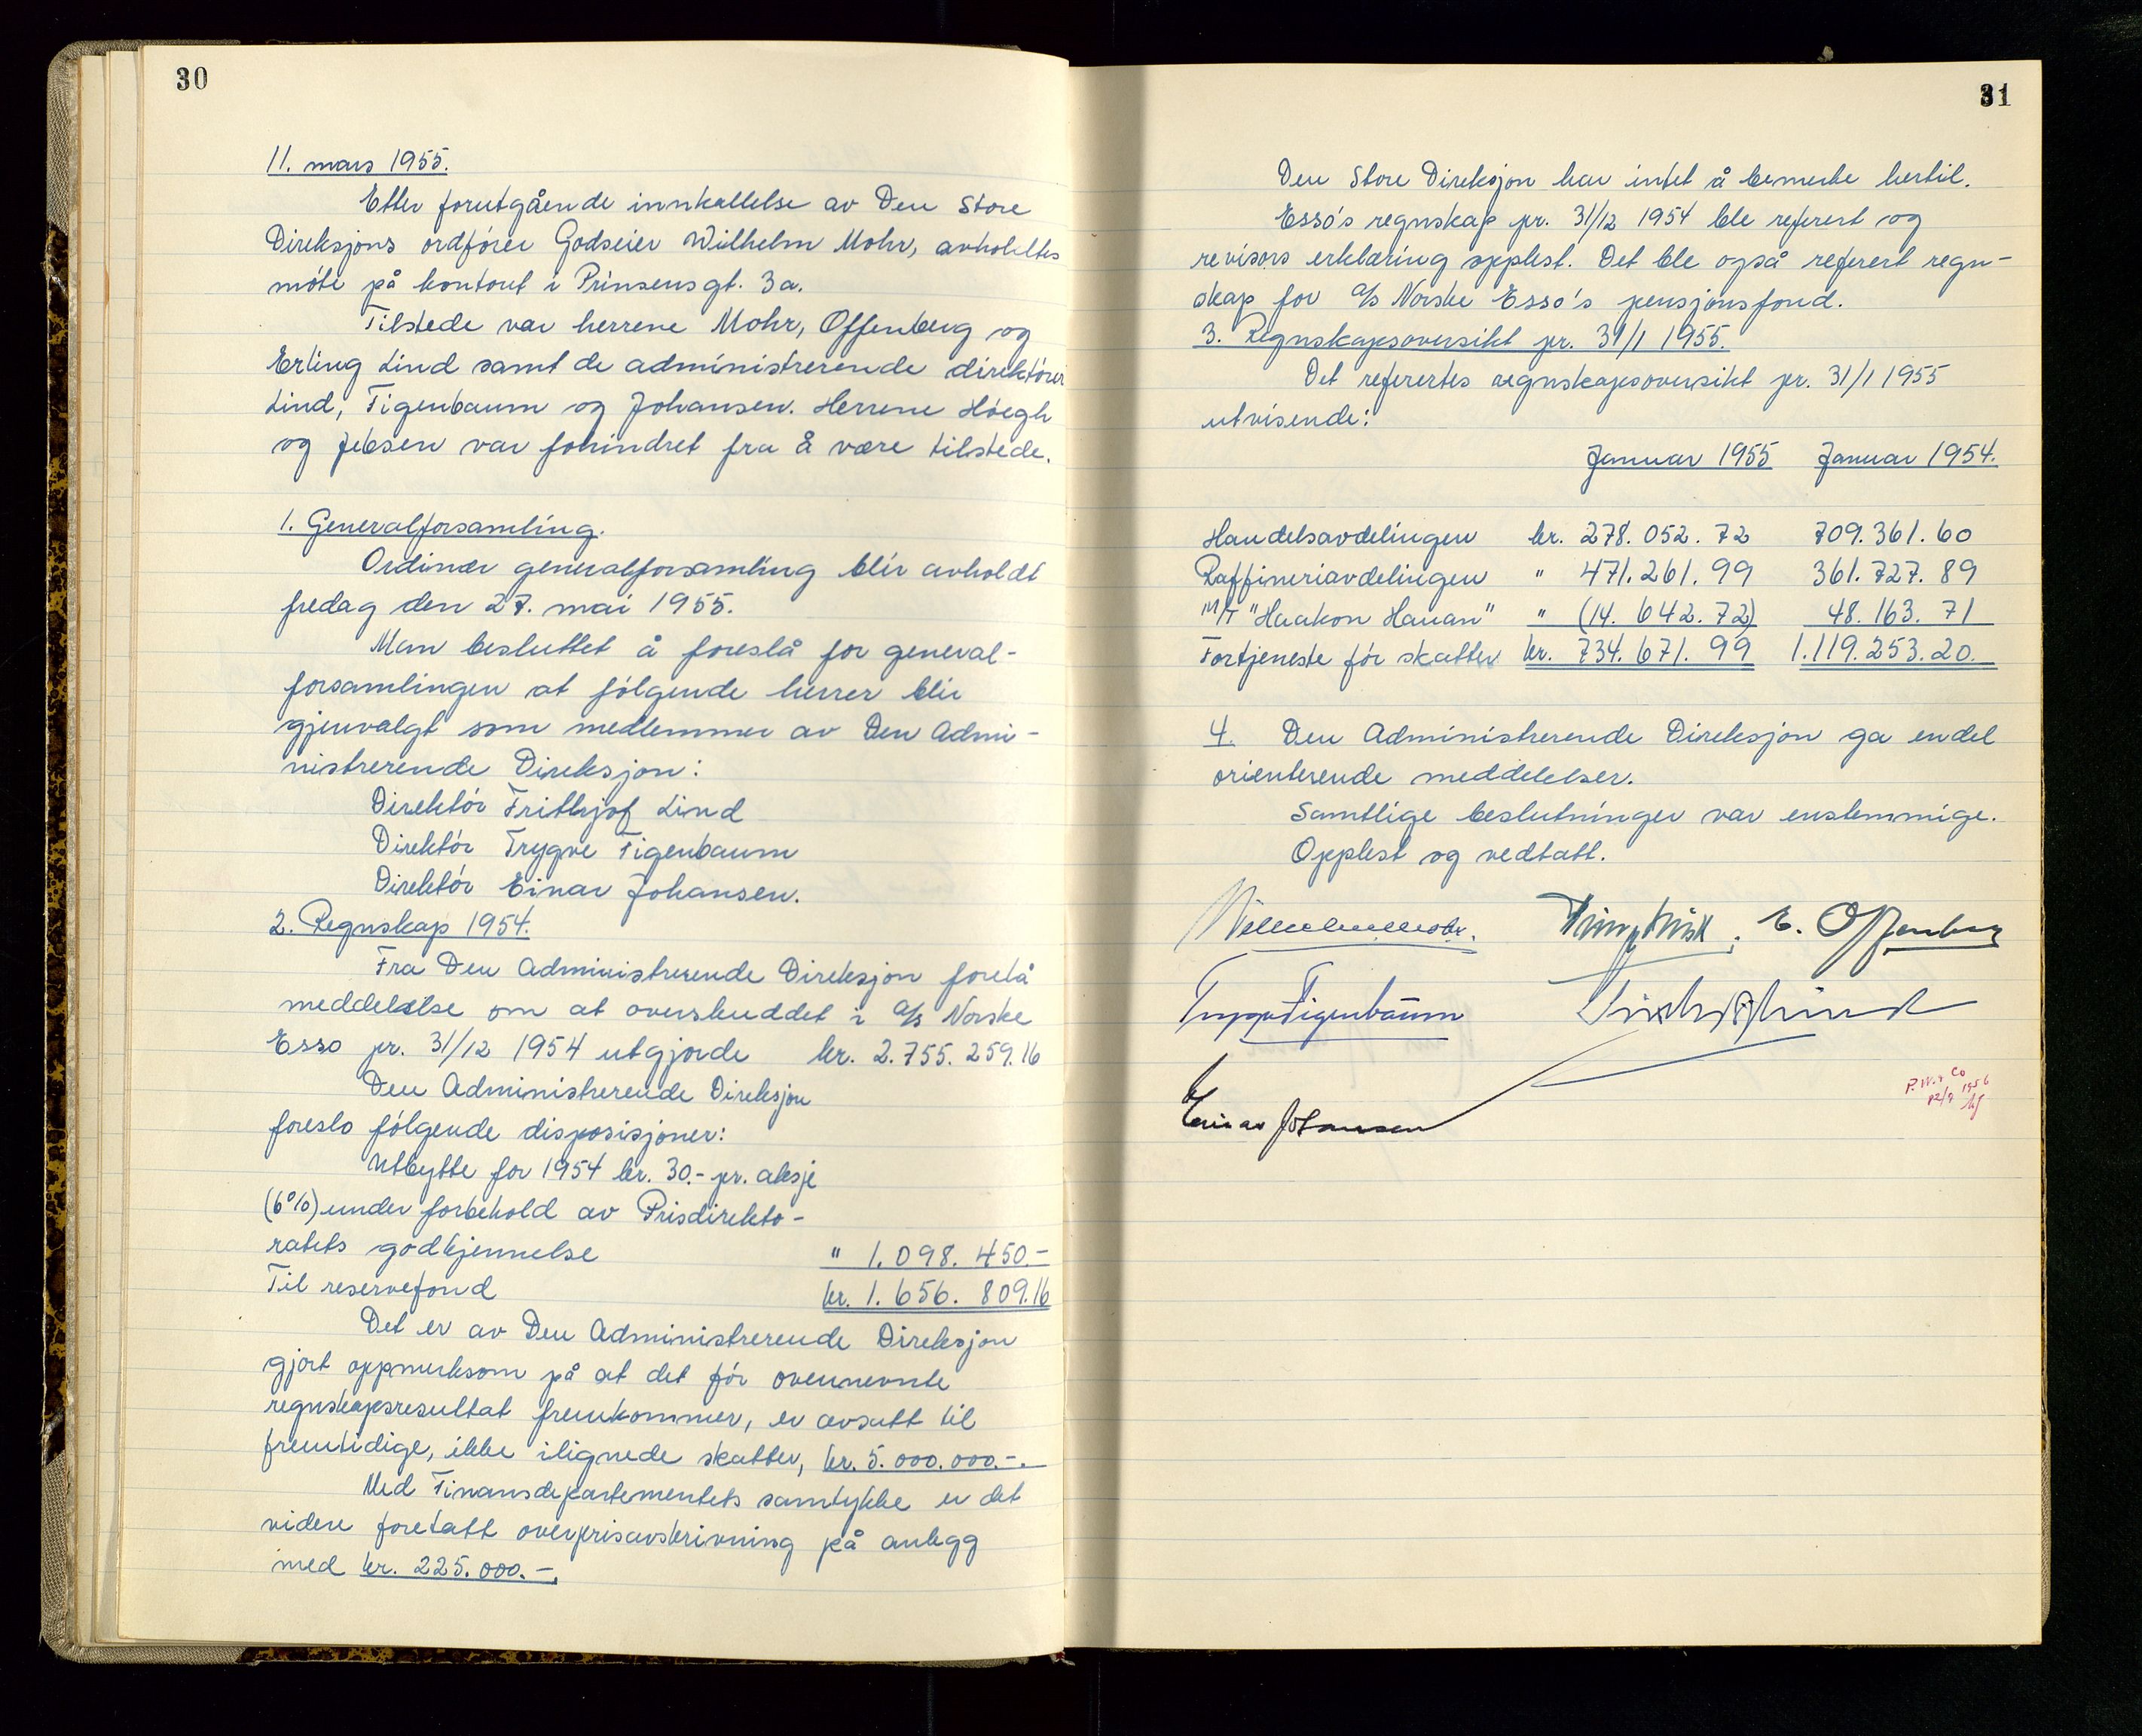 30
11. mars 1955.
Etter forutgående innkallelse av Den Store
Direksjons ordfører Godseier Wilhelm Mohr, avholdtes
møte på kontoret i Prinsensgt. 3a.
Tilstede var herrene Mohr, Offenberg og
Erling Lind samt de administrerende direktører
Lind, Figenbaum og Johansen. Herrene Høegh
og Jebsen var forhindret fra å være tilstede.
1. Generalforsamling.
Ordinær generalforsamling blir avholdt
fredag den 27. mai 1955.
Man besluttet å foreslå for general-
forsamlingen at følgende herrer blir
gjenvalgt som medlemmer av Den Admi-
nistrerende Direksjon:
Direktør Frithjof Lind
Direktør Trygve Figenbaum
Direktør Einar Johansen.
2. Regnskap 1954.
Fra Den Administrerende Direksjon forelå
meddelelse om at overskuddet i A/S Norske
Esso pr. 31/12 1954 utgjorde kr. 2.755.259.16
Den Administrerende Direksjon
foreslo følgende disposisjoner:
Utbytte for 1954 kr. 30.- pr. aksje
(6%) under forbehold av Prisdirekto-
ratets godkjennelse " 1.098.450.-
Til reservefond kr. 1.656.809.16
Det er av Den Administrerende Direksjon
gjort oppmerksom på at det før ovennevnte
regnskapsresultat fremkommer, er avsatt til
fremtidige, ikke ilignede skatter, kr. 5.000.000.-.
Med Finansdepartementets samtykke er det
videre foretatt overprisavskrivning på anlegg
med kr. 225.000.-.
31
Den Store Direksjon har intet å bemerke hertil.
Esso's regnskap pr. 31/12 1954 ble referert og
revisors erklæring opplest. Det ble også referert regn-
skap for A/S Norske Esso's pensjonsfond.
3. Regnskapsoversikt pr. 31/1 1955.
Det referertes regnskapsoversikt pr. 31/1 1955
utvisende:
Januar 1955 Januar 1954.
Handelsavdelingen kr. 278.052.72 709.361.60
Raffineriavdelingen " 471.261.99 361.727.89
M/T "Haakon Hauan" " (14.642.72) 48.163.71
Fortjeneste før skatter kr. 734.671.99 1.119.253.20.
4. Den Administrerende Direksjon ga endel
orienterende meddelelser.
Samtlige beslutninger var enstemmige.
Opplest og vedtatt.
Wilhelm Mohr. E. Offenberg
Trygve Figenbaum Frithjof Lind
Einar Johansen
P.W. & Co
1956